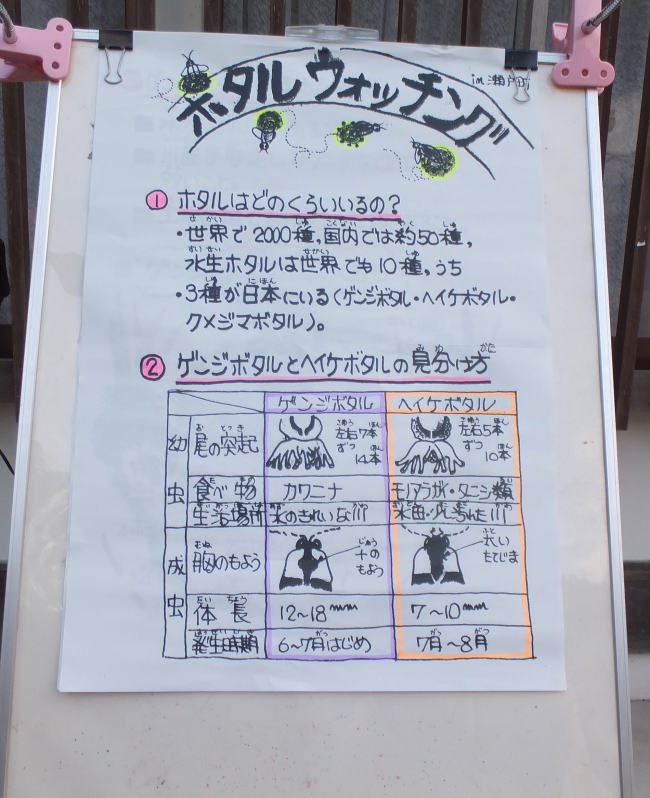 ホタルウォッチング
in 瀬戸町
① ホタルはどのくらいいるの?
・世界で2000種。国内では約50種。
水生ホタルは世界でも10種。うち
・3種が日本にいる(ゲンジボタル・ヘイケボタル・
クメジマボタル)。
② ゲンジボタルとヘイケボタルの見分け方
ゲンジボタル ヘイケボタル
幼虫 尾の突起 左右7本ずつ14本 左右5本ずつ10本
食べ物 カワニナ モノアラガイ・タニシ類
生活場所 水のきれいな川 水田・少し汚れた川
成虫 胸のもよう 十のもよう 太いたてじま
体長 12~18mm 7~10mm
発生時期 6~7月はじめ 7月~8月